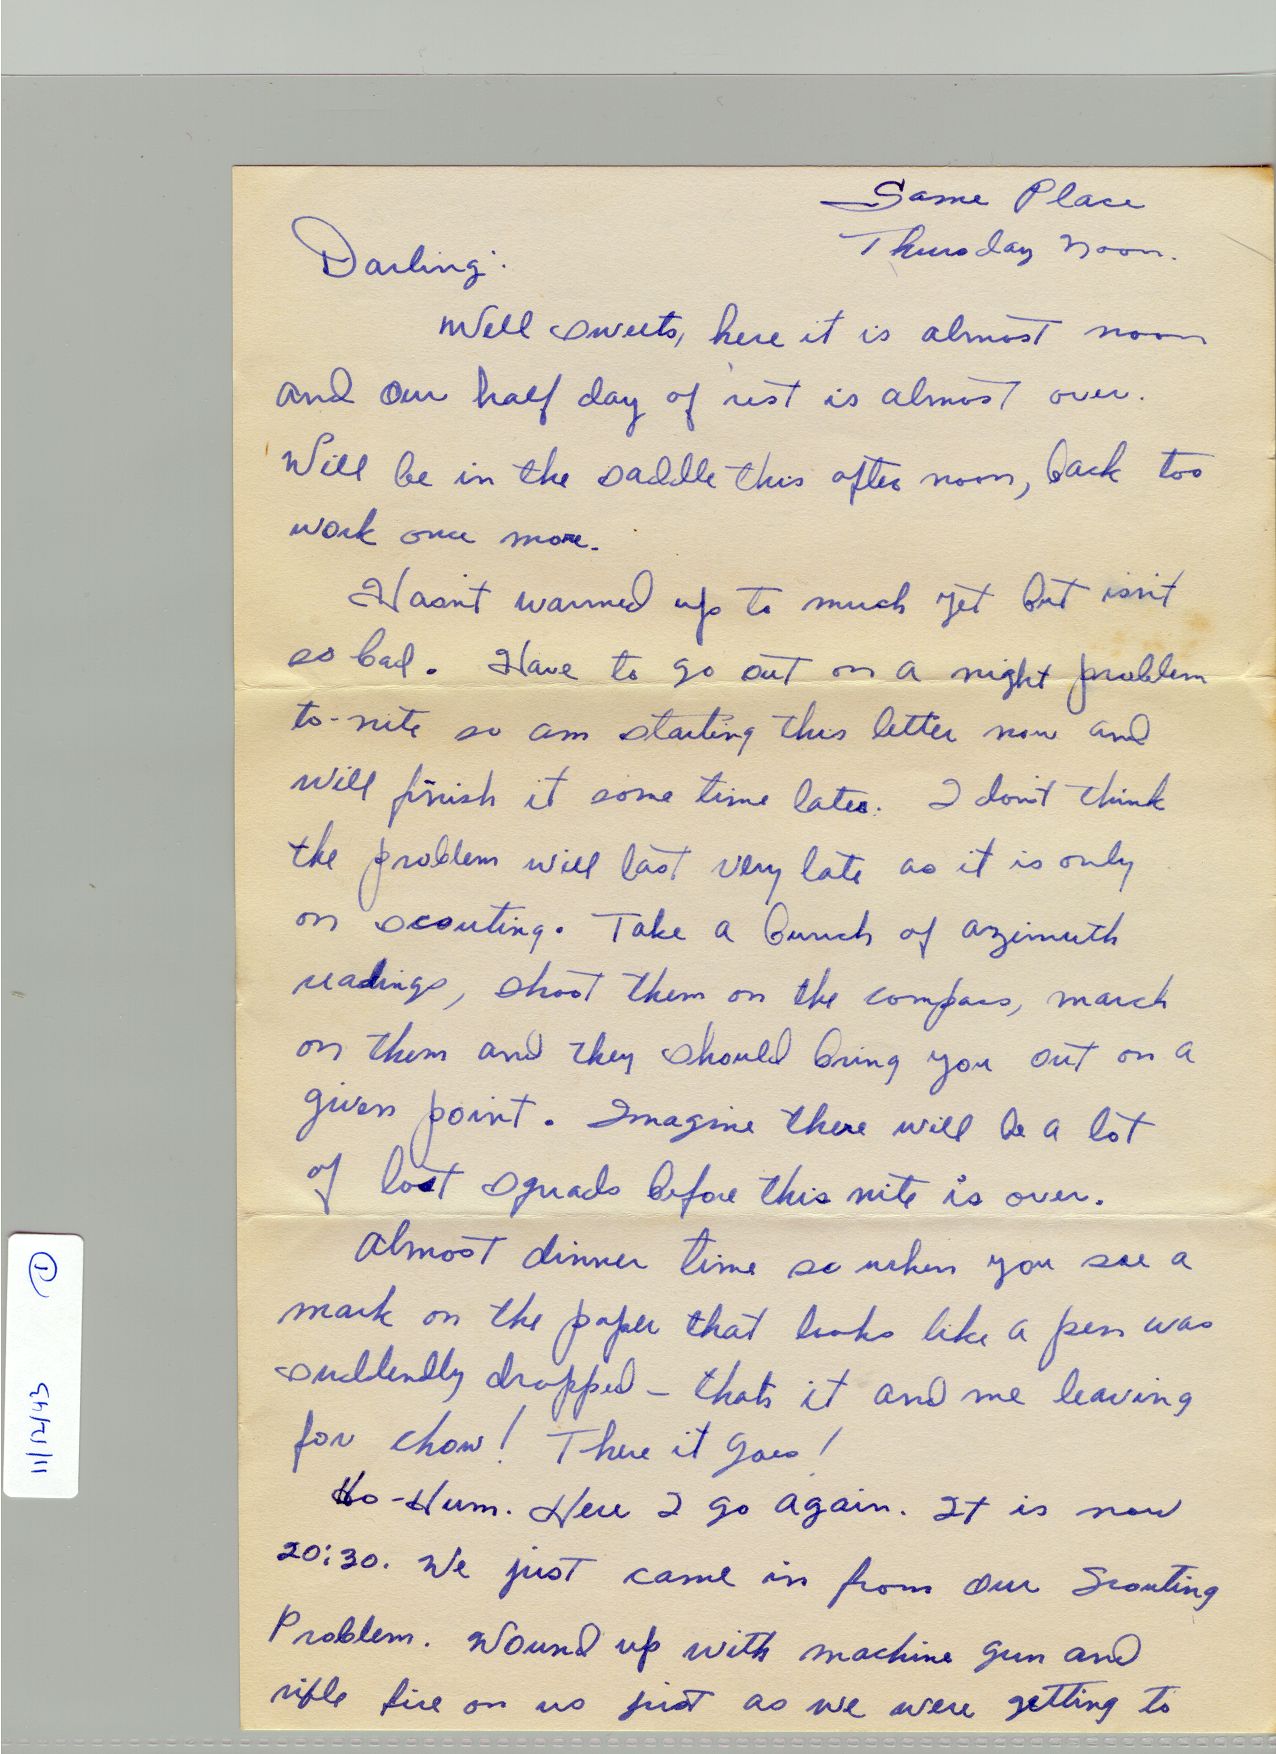 Same Place
Thursday noon.
Darling:
Well sweets, here it is almost noon
and our half day of rest is almost over.
Will be in the saddle this after noon, back too
work once more.
Hasn't warmed up to much yet but isn't
so bad. Have to go out on a night problem
to-nite so am starting this letter now and
will finish it some time later. I don't think
the problem will last very late as it is only
on scouting. Take a bunch of azimuth
readings, shoot them on the compass, march
on them and they should bring you out on a
given point. Imagine there will be a lot
of lost squads before this nite is over.
Almost dinner time so when you see a
mark on the paper that looks like a pen was
suddendly dropped - thats it and me leaving
for chow! There it goes!
Ho-Hum. Here I go again. It is now
20:30. We just came in from our Scouting
Problem. Wound up with machine gun and
rifle fire on us just as we were getting to
1
11/12/43